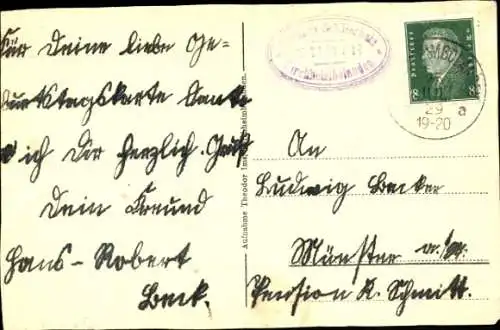 Für Deine liebe Ge-
burtstagskarte danke
ich Dir herzlich. Gruß
Dein Freund
Hans-Robert
Beck.
Aufnahme Theodor
An
Ludwig Becker
Münster a./St.
Pension K. Schmitt.
Deutsches Reich
8 8
29 a
19-20